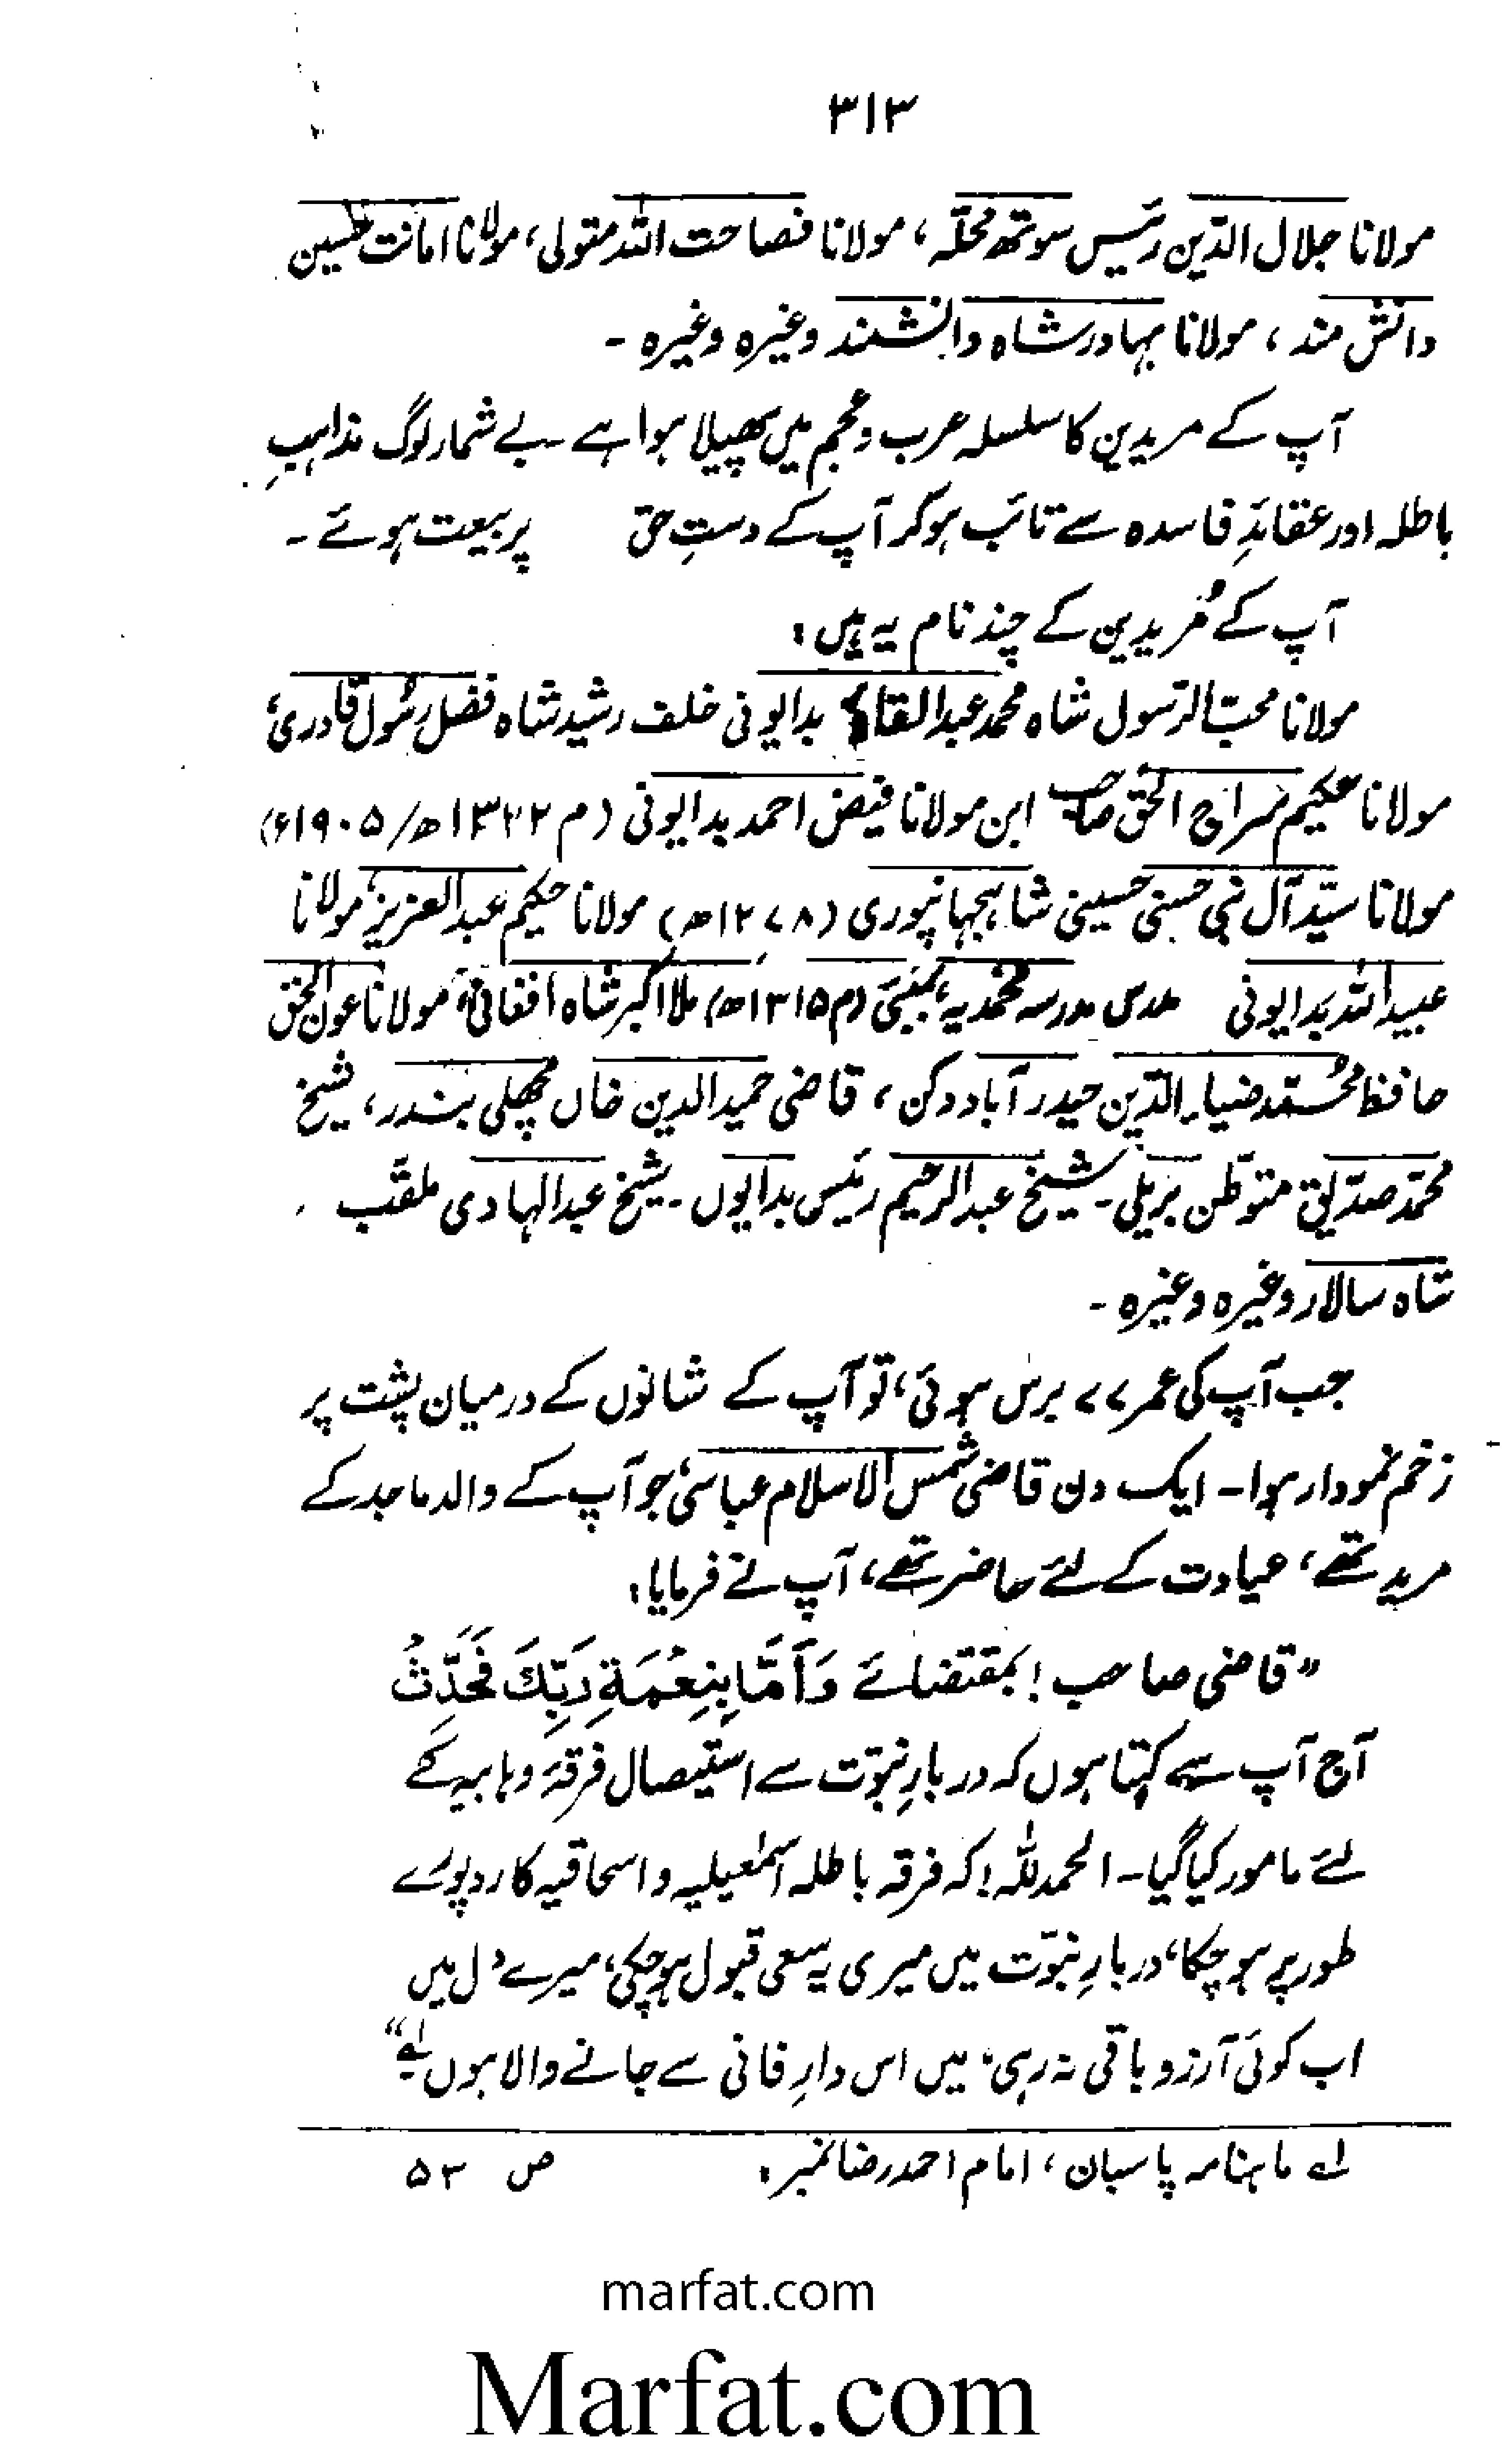 ۳۱۳
مولانا جلال الدّین رئیس سوتھ محلّہ، مولانا فصاحت اللہ متولی، مولانا امانت حسین
دانش مند، مولانا بہادر شاہ دانشمند وغیرہ وغیرہ۔
آپ کے مریدین کا سلسلہ عرب و عجم میں پھیلا ہوا ہے۔ بے شمار لوگ مذاہبِ
باطلہ اور عقائدِ فاسدہ سے تائب ہوکر آپ کے دستِ حق پر بیعت ہوئے۔
آپ کے مُریدین کے چند نام یہ ہیں:
مولانا محبّ الرّسول شاہ محمد عبدالقادر بدایونی خلف رشید شاہ فضل رسُول قادری،
مولانا حکیم سراج الحق صاحب ابن مولانا فیض احمد بدایونی (م ۱۳۲۲ھ/۱۹۰۵ء)
مولانا سیّد آل نبی حسنی حسینی شاہجہانپوری (۱۲۷۸ھ) مولانا حکیم عبدالعزیز، مولانا
عبید اللہ بدایونی مدرس مدرسہ محمدیہ، بمبئی (م ۱۳۱۵ھ) ملا اکبر شاہ افغانی، مولانا عون الحق
حافظ محمّد ضیاء الدّین حیدر آباد دکن، قاضی حمید الدین خاں مچھلی بندر، شیخ
محمّد صدّیق متوطّن بریلی۔ شیخ عبدالرحیم رئیس بدایوں۔ شیخ عبدالہادی ملقّب
شاہ سالار وغیرہ وغیرہ۔
جب آپ کی عمر ۷۷ برس ہوئی، تو آپ کے شانوں کے درمیان پشت پر
زخم نمودار ہوا۔ ایک دن قاضی شمس الاسلام عباسی، جو آپ کے والد ماجد کے
مرید تھے، عیادت کے لئے حاضر تھے، آپ نے فرمایا:
"قاضی صاحب! بمقتضائے وَاَمَّا بِنِعْمَةِ رَبِّكَ فَحَدِّثْ
آج آپ سے کہتا ہوں کہ دربارِ نبوّت سے استیصال فرقۂ وہابیہ کے
لئے مامور کیا گیا۔ الحمد للہ! کہ فرقہ باطلہ اسمٰعیلیہ و اسحاقیہ کا رد پورے
طور پر ہوچکا، دربارِ نبوّت میں میری یہ سعی قبول ہوچکی، میرے دل میں
اب کوئی آرزو باقی نہ رہی، میں اس دارِ فانی سے جانے والا ہوں۔" لہ
لہ ماہنامہ پاسبان، امام احمد رضا نمبر: ص ۵۳
marfat.com
Marfat.com